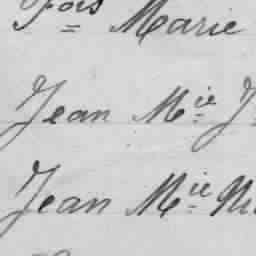 Fois Marie
Jean Mie
Jean Mie